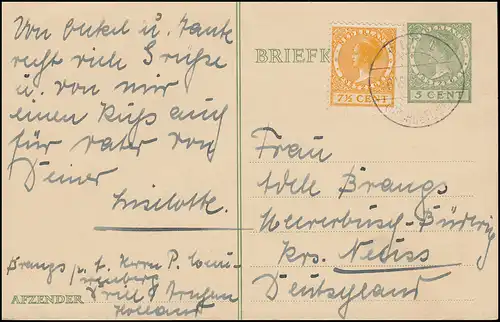 Von Onkel u. Tante
recht viele Grüße
u. von mir
einen Kuß auch
für Vater von
Deiner
Liselotte.
Brangs p. A. Herrn P.
AFZENDER
Holland
BRIEFK
NEDERLAND
7½ CENT
NEDERLAND
5 CENT
Frau
Adele Brangs
Meererbusch-Büderich
Krs. Neuss
Deutschland